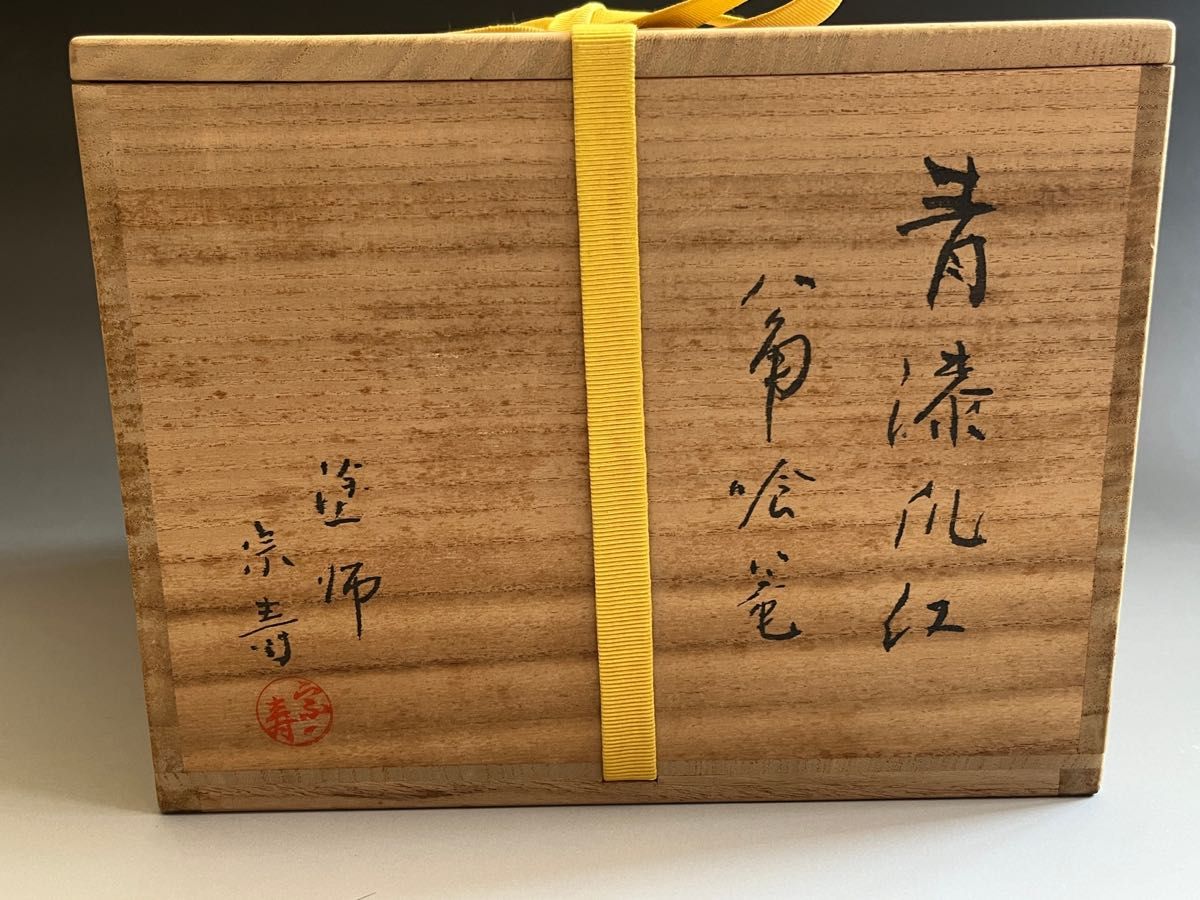 青漆爪紅
八角喰篭
塗師
宗寿
宗寿